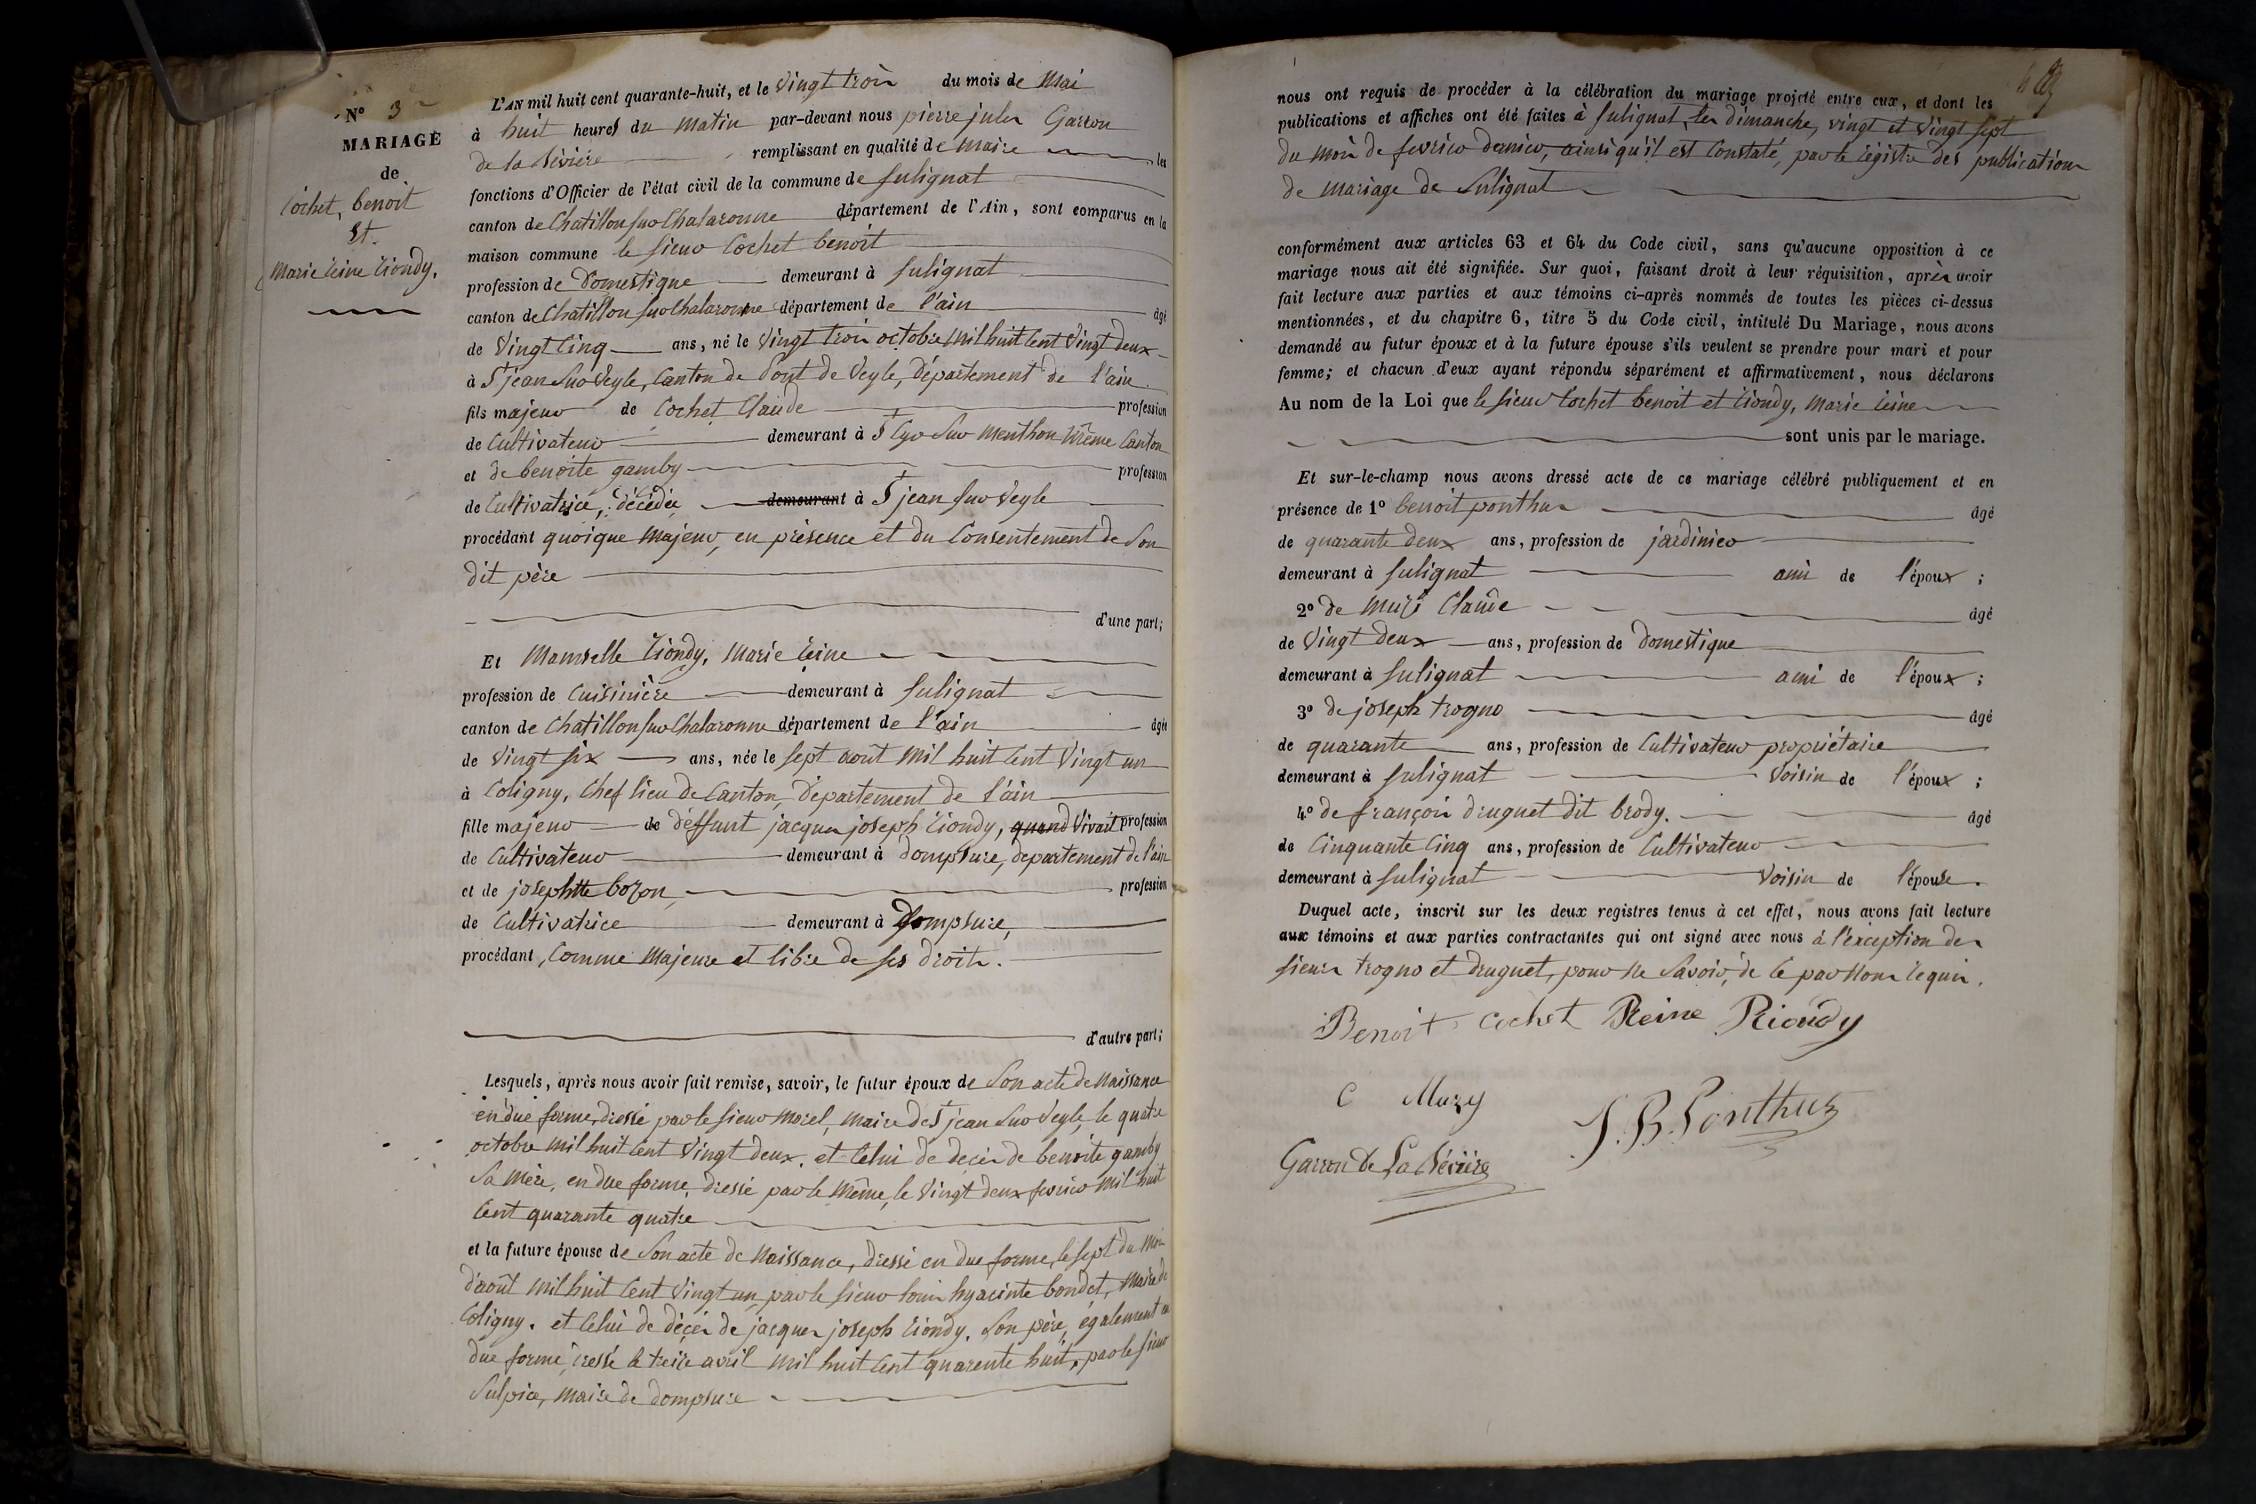 N° 3
MARIAGE
de
Cochet, benoit
Et.
Marie reine riondy.
L'AN mil huit cent quarante-huit, et le vingt trois du mois de Mai
à huit heures du matin par-devant nous pierre jules Garron
de la bévière remplissant en qualité de Maire les
fonctions d'Officier de l'état civil de la commune de Sulignat
canton de Chatillon sur Chalaronne département de l'Ain, sont comparus en la
maison commune le sieur Cochet benoit
profession de Domestique demeurant à Sulignat
canton de Chatillon sur Chalaronne département de l'ain âgé
de Vingt Cinq ans, né le Vingt trois octobre Mil huit Cent Vingt deux
à St jean sur Veyle, Canton de Pont de Veyle, Département de l'ain
fils majeur de Cochet Claude profession
de Cultivateur demeurant à St Cyr sur Menthon même Canton
et de benoite gamby profession
de Cultivatrice, décédée demeurant à St jean sur Veyle
procédant quoique Majeur, en présence et du Consentement de Son
dit père
d'une part;
Et Mamselle riondy, Marie reine
profession de Cuisinière demeurant à Sulignat
canton de Chatillon sur Chalaronne département de l'ain âgée
de Vingt six ans, née le sept août Mil huit Cent Vingt un
à Coligny, Chef lieu de Canton, Département de l'ain
fille majeur de deffunt jacques joseph riondy, quand Vivait profession
de Cultivateur demeurant à Dompsure, département de l'ain
et de josephtte bozon, profession
de Cultivatrice demeurant à Dompsure,
procédant, Comme Majeure et libre de ses droits.
d'autre part;
Lesquels, après nous avoir fait remise, savoir, le futur époux de Son acte de Naissance
en due forme, dressé par le sieur Morel, Maire de St jean sur Veyle, le quatre
octobre Mil huit Cent Vingt deux. et Celui de décès de benoite gamby
Sa Mère, en due forme, dressé par le Même, le Vingt deux fevrier Mil huit
Cent quarante quatre
et la future épouse de Son acte de Naissance, dressé en due forme, le sept du Mois
d'août Mil huit Cent Vingt un, par le sieur louis hyacinte bondet, Maire de
Coligny. et Celui de décès de jacques joseph riondy, Son père, également en
due forme, dressé le treize avril Mil huit Cent quarente huit, par le sieur
Sulpice, Maire de dompsure
nous ont requis de procéder à la célébration du mariage projeté entre eux, et dont les
publications et affiches ont été faites à Sulignat, les dimanche, vingt et Vingt sept
du Mois de fevrier dernier, ainsi qu'il est Constaté, par le régistre des publications
de Mariage de Sulignat
conformément aux articles 63 et 64 du Code civil, sans qu'aucune opposition à ce
mariage nous ait été signifiée. Sur quoi, faisant droit à leur réquisition, après avoir
fait lecture aux parties et aux témoins ci-après nommés de toutes les pièces ci-dessus
mentionnées, et du chapitre 6, titre 5 du Code civil, intitulé Du Mariage, nous avons
demandé au futur époux et à la future épouse s'ils veulent se prendre pour mari et pour
femme; et chacun d'eux ayant répondu séparément et affirmativement, nous déclarons
Au nom de la Loi que le sieur Cochet benoit et riondy, Marie reine
sont unis par le mariage.
Et sur-le-champ nous avons dressé acte de ce mariage célébré publiquement et en
présence de 1° benoit ponthus âgé
de quarante deux ans, profession de jardinier
demeurant à Sulignat ami de l'époux;
2° de Muzi Claude âgé
de Vingt deux ans, profession de Domestique
demeurant à Sulignat ami de l'époux;
3° de joseph trogno âgé
de quarante ans, profession de Cultivateur propriétaire
demeurant à Sulignat Voisin de l'époux;
4° de françois druguet dit brody. âgé
de Cinquante Cinq ans, profession de Cultivateur
demeurant à Sulignat Voisin de l'épouse.
Duquel acte, inscrit sur les deux registres tenus à cet effet, nous avons fait lecture
aux témoins et aux parties contractantes qui ont signé avec nous à l'exception des
sieurs trogno et druguet, pour ne Savoir, de Ce par Nous requis.
Benoit Cochet Reine Riondy
C Muzy
J. B. Ponthus
Garron de La Bévière